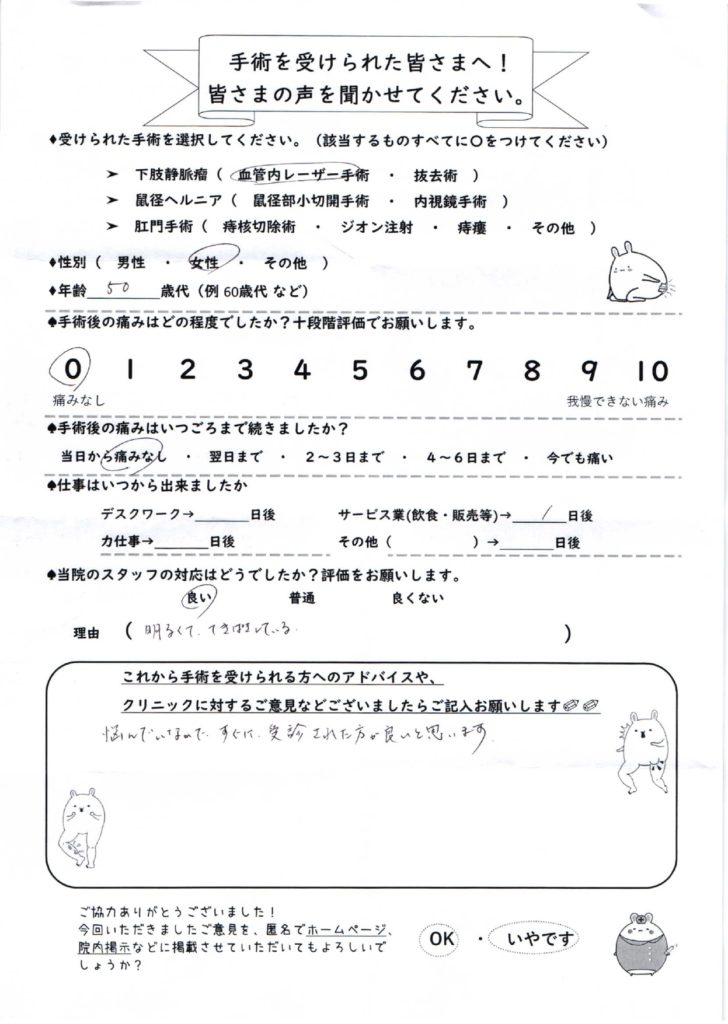 手術を受けられた皆さまへ！
皆さまの声を聞かせてください。
♦受けられた手術を選択してください。（該当するものすべてに〇をつけてください）
➤ 下肢静脈瘤（ 血管内レーザー手術 ・ 抜去術 ）
➤ 鼠径ヘルニア（ 鼠径部小切開手術 ・ 内視鏡手術 ）
➤ 肛門手術（ 痔核切除術 ・ ジオン注射 ・ 痔瘻 ・ その他 ）
♦性別（ 男性 ・ 女性 ・ その他 ）
♦年齢 50 歳代（例 60歳代 など）
♠手術後の痛みはどの程度でしたか？十段階評価でお願いします。
0 1 2 3 4 5 6 7 8 9 10
痛みなし 我慢できない痛み
♠手術後の痛みはいつごろまで続きましたか？
当日から痛みなし ・ 翌日まで ・ 2～3日まで ・ 4～6日まで ・ 今でも痛い
♠仕事はいつから出来ましたか
デスクワーク→______日後 サービス業(飲食・販売等)→ / 日後
力仕事→______日後 その他（ ）→______日後
♠当院のスタッフの対応はどうでしたか？評価をお願いします。
良い 普通 良くない
理由 ( 明るくて、てきぱきしている. )
これから手術を受けられる方へのアドバイスや、
クリニックに対するご意見などございましたらご記入お願いします
悩んでいるので、すぐに、受診された方が良いと思います
ご協力ありがとうございました！
今回いただきましたご意見を、匿名でホームページ、
院内掲示などに掲載させていただいてもよろしいで
しょうか？
OK ・ いやです